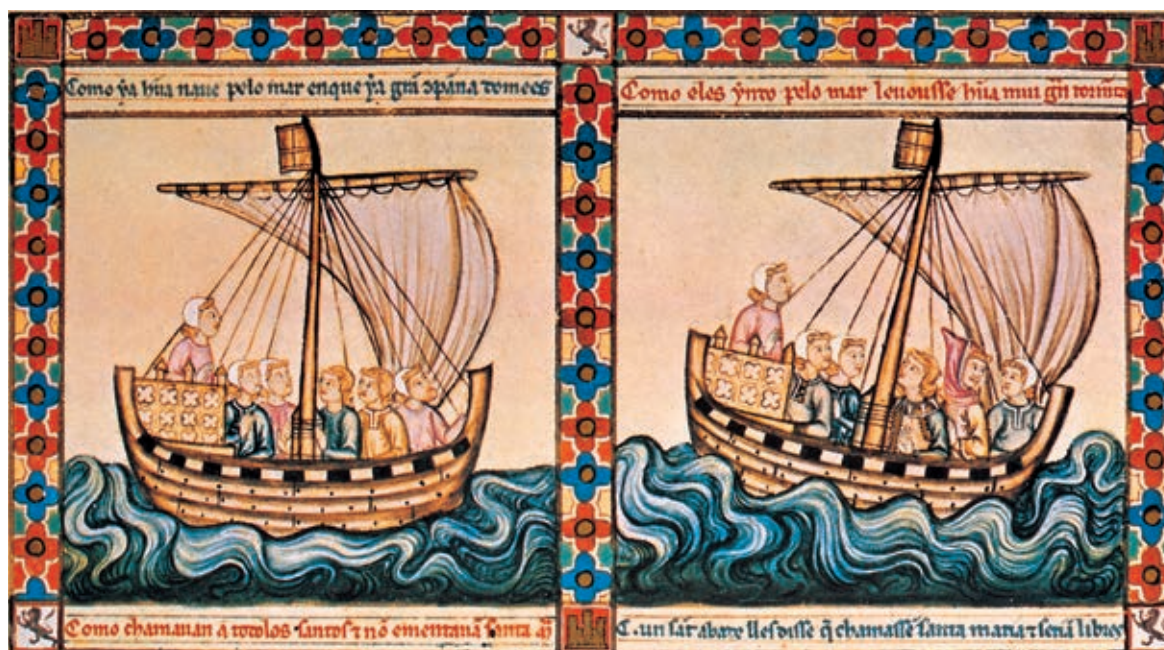 Como ya hũa naue pelo mar enque ya grã 
Como eles ỹnto pelo mar leuousse hũa mui grã tormẽta
Como chamauan a todolos santos ⁊ nõ ementauã santa
C. un sãt abade lles disse q̃ chamassẽ santa maria ⁊ seriã libres